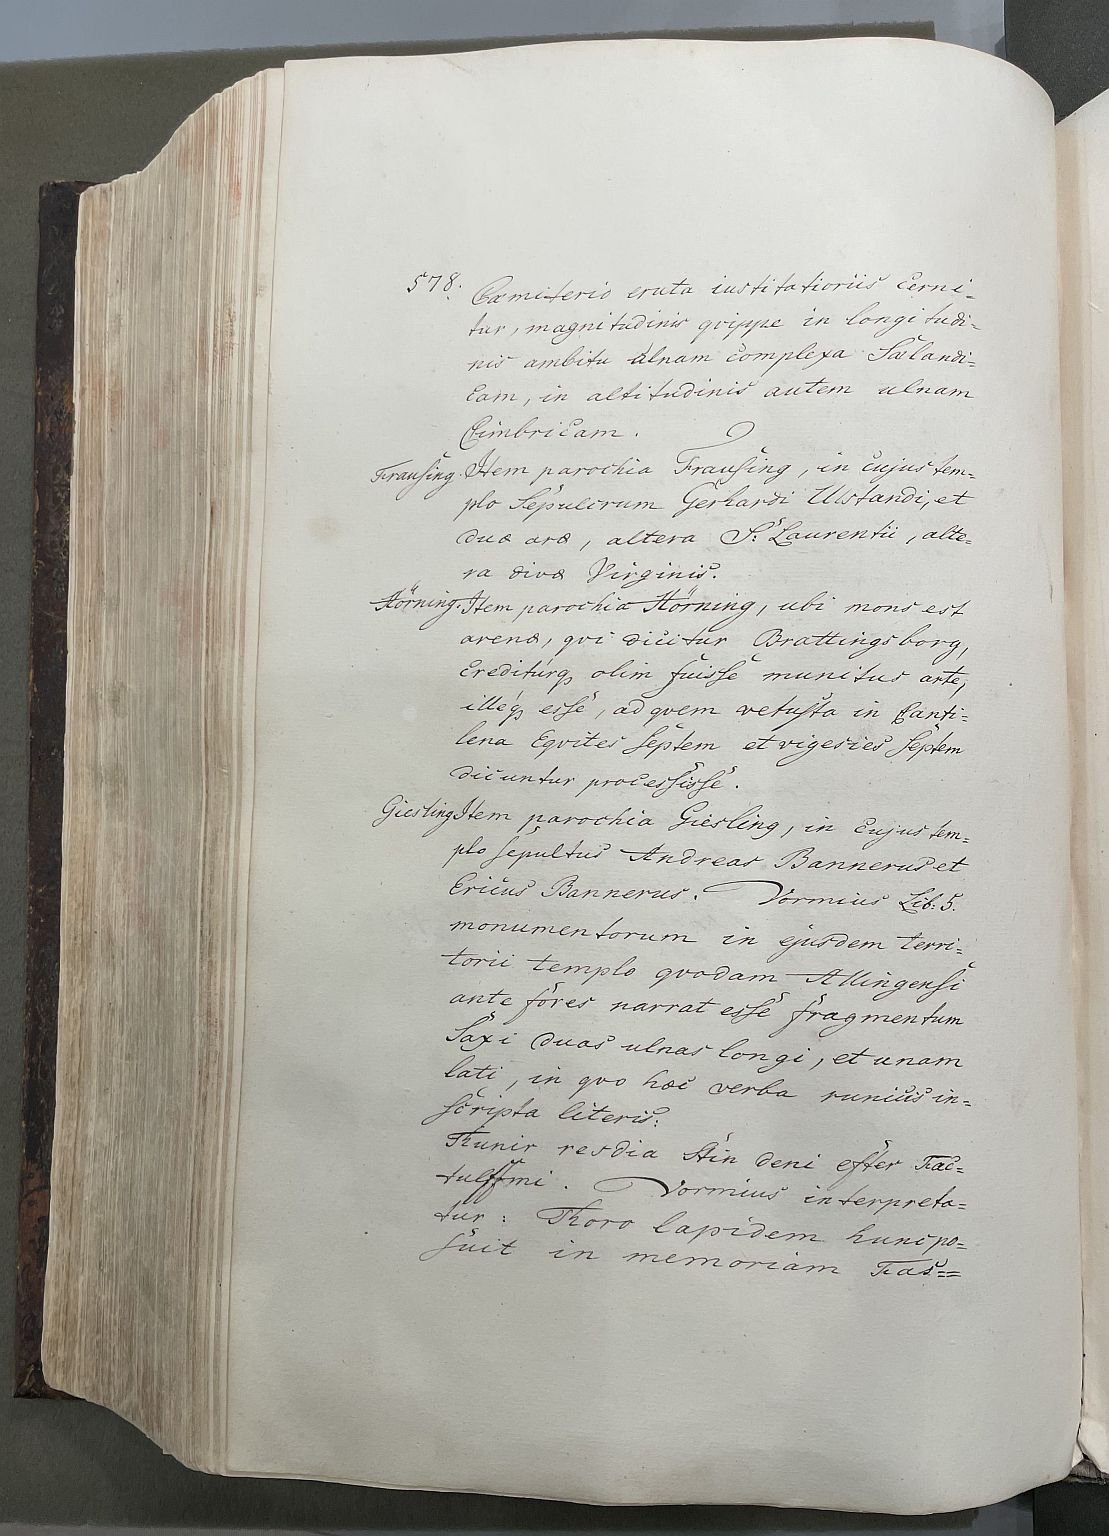 578.
Cœmiterio eruta iustitatioriis cerni-
tur, magnitudinis qvippe in longitudi-
nis ambitu ulnam complexa Sælandi-
cam, in altitudinis autem ulnam
Cimbricam.
Frausing. Item parochia Frausing, in cujus tem-
plo sepulcrum Gerhardi Ulstandi, et
duæ aræ, altera S: Laurentii, alte-
ra divæ Virginis.
Hörning. Item parochia Hörning, ubi mons est
arenæ, qvi dicitur Brattingsborg,
crediturq olim fuisse munitus arte,
illéq esse, ad qvem vetusta in canti-
lena Eqvites septem et vigesies septem
dicuntur processisse.
Giesling Item parochia Giesling, in cujus tem-
plo sepultus Andreas Bannerus et
Ericus Bannerus. Vormius Lib: 5.
monumentorum in ejusdem terri-
torii templo qvodam Allingensi
ante fores narrat esse fragmentum
saxi duas ulnas longi, et unam
lati, in qvo hæc verba runicis in-
scripta literis:
Thunir resdia Stin deni efter Fac-
tulffmi. Vormius interpreta-
tur: Thoro lapidem hunc po-
suit in memoriam Fas=